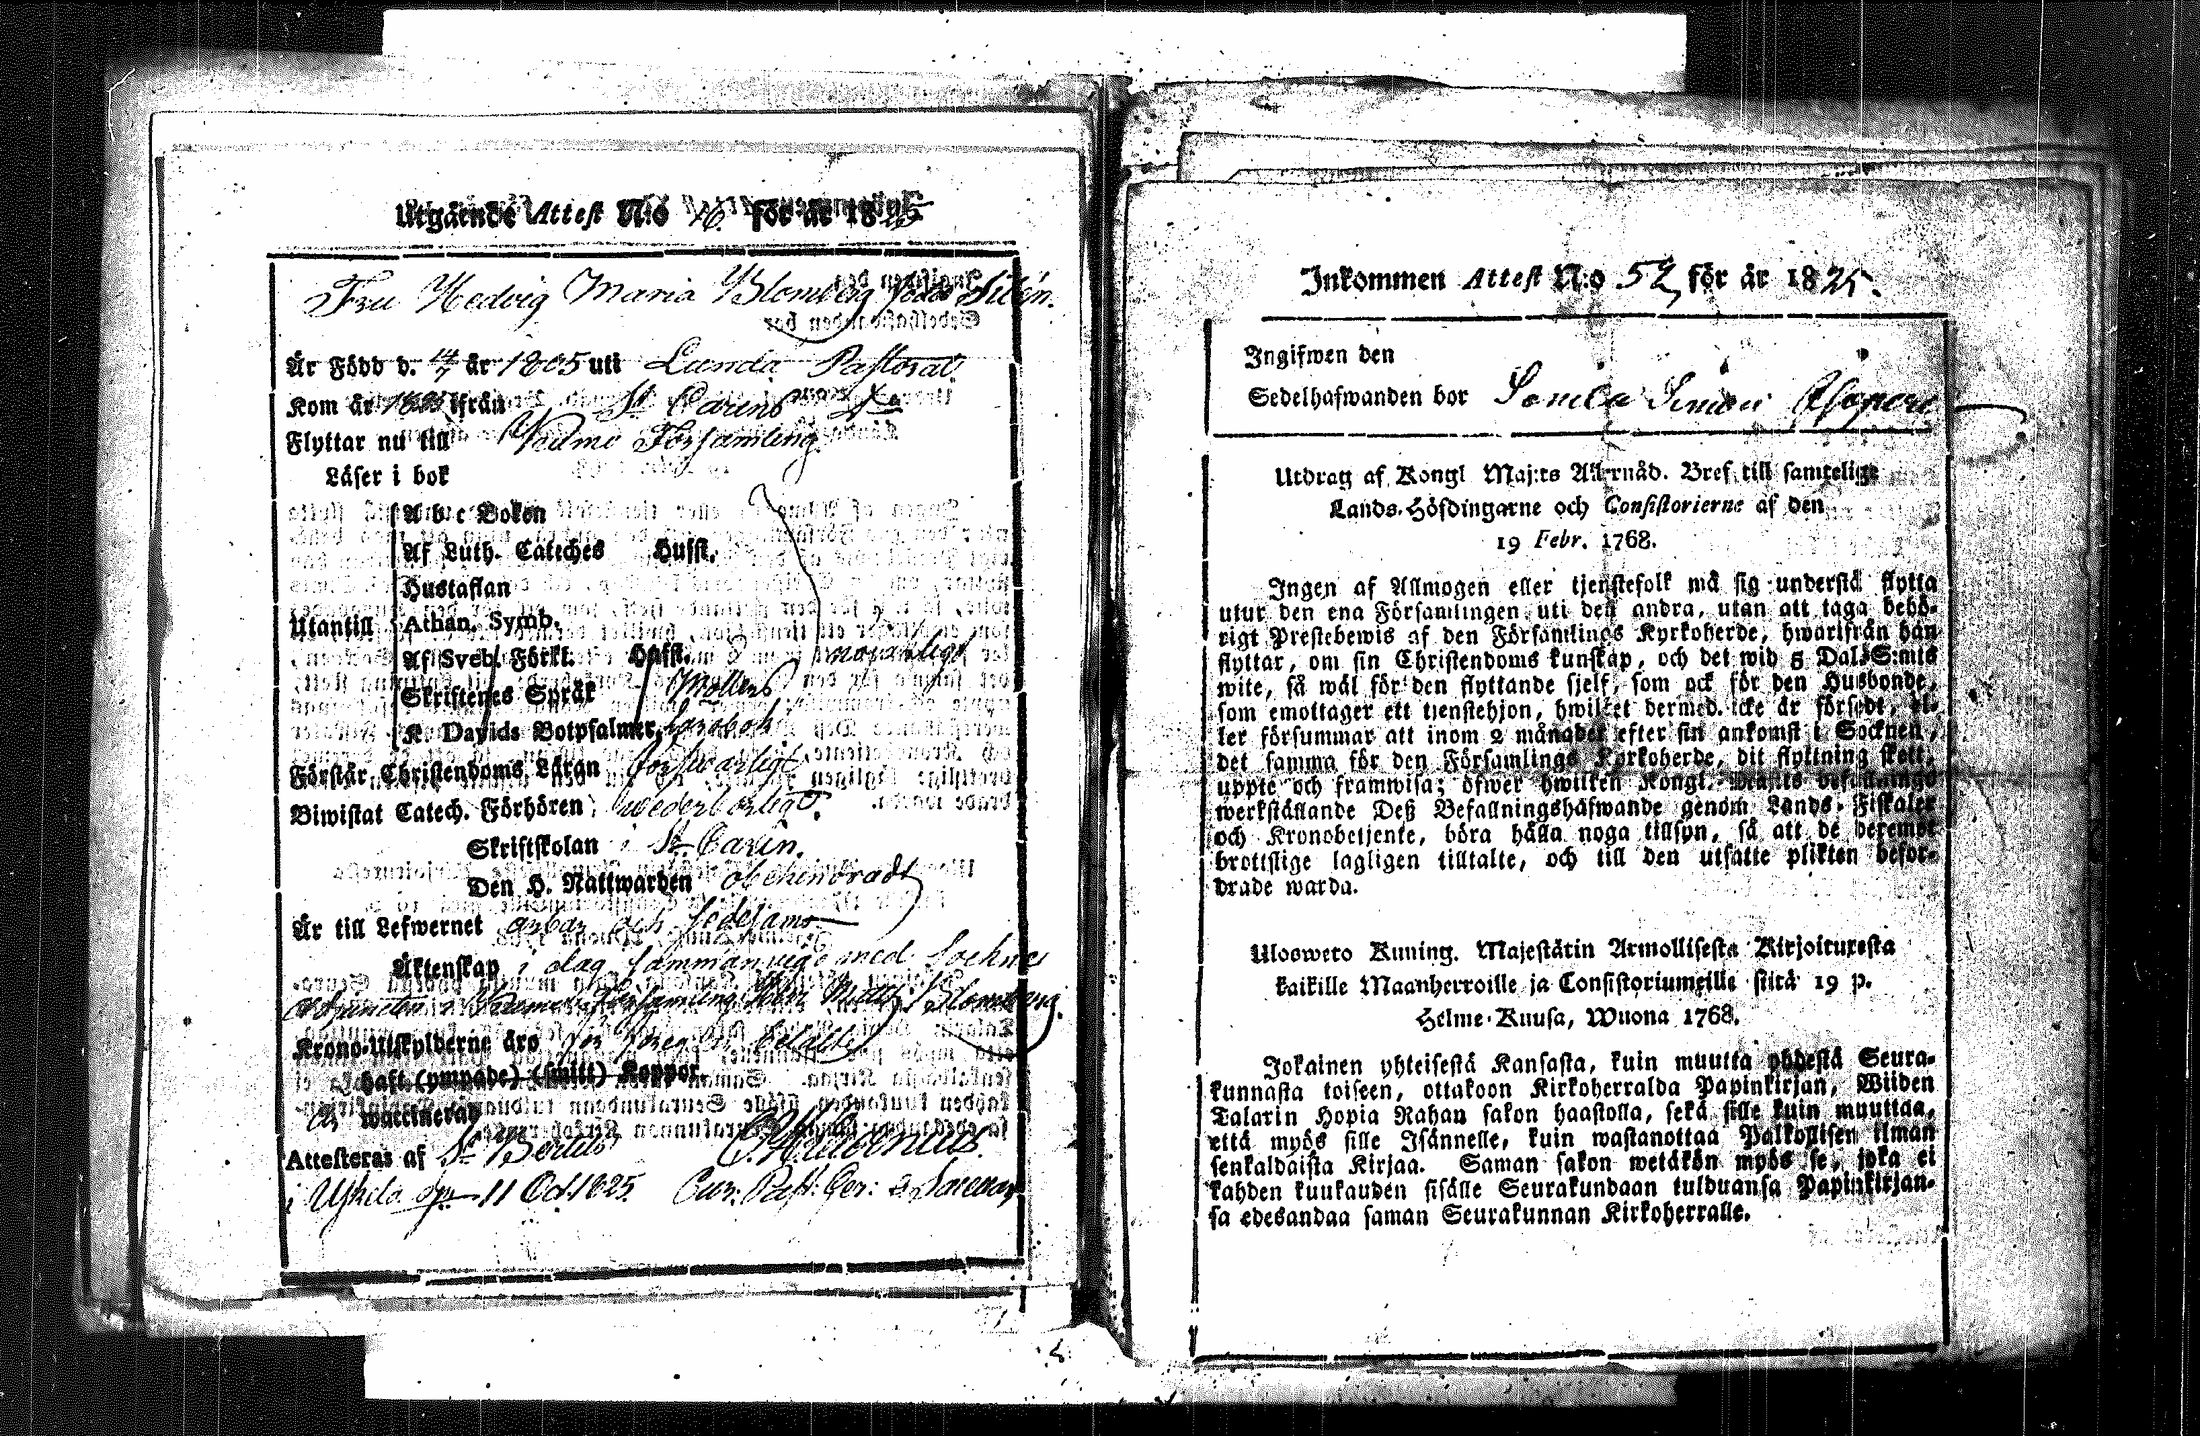 Utgående Attest N:o 16. för år 1825
Fru Hedvig Maria Blomberg född Silén.
Är Född d. 14/7 år 1805 uti Lunda Pastorat
Kom år ifrån St Carins
Flyttar nu till Församling.
Läser i bok
A b c Boken
Af Luth. Cateches Husfl.
Hustaflan
Utantill Athan. Symb.
Af Sveb. Förkl. Husfl.
Skriftenes Språk Möllers
K. Davids Botpsalmer, Lärobok
Förstår Christendoms Läran försvarligt,
Biwistat Catech. Förhören wederbörligt.
Skriftskolan i St Carin.
Den H. Nattwarden obehindradt
Är till Lefwernet ärbar och sedesam
Äktenskap i dag sammanvigd med Sockne
Adjuncten i Församling Herr Blomberg.
Krono-Utskylderne äro för betalte
haft (ympade) (smitt) Koppor.
är waccinerad
Attesteras af
i Uskela d. 11 Oct 1825. Cur: Past: Ger:
Inkommen Attest N:o 52 för år 1825.
Ingifwen den
Sedelhafwanden bor Simon
Utdrag af Kongl Maj:ts Allernåd. Bref till samtelige
Lands-Höfdingarne och Consistorierne af den
19 Febr. 1768.
Ingen af Allmogen eller tjenstefolk må sig understå flytta
utur den ena Församlingen uti den andra, utan att taga behö-
rigt Prestebewis af den Församlings Kyrkoherde, hwarifrån han
flyttar, om sin Christendoms kunskap, och det wid 5 Dal. S:mts
wite, så wäl för den flyttande sjelf, som ock för den Husbonde,
som emottager ett tjenstehjon, hwilket dermed icke är försedt, el-
ler försummar att inom 2 månader efter sin ankomst i Socknen,
det samma för den Församlings Kyrkoherde, dit flyttning skett,
uppte och framwisa; öfwer hwilken Kongl. Maj:ts befallnings
werkställande Deß Befallningshafwande genom Lands-Fiskaler
och Kronobetjente, böra hålla noga tillsyn, så att de deremot
brottslige lagligen tilltalte, och till den utsatte plikten befor-
drade warda.
Ulosweto Kuning. Majestätin Armollisesta Kirjoituresta
kaikille Maanherroille ja Consistoriumeille siitä 19 p.
Helme-Kuusa, Wuona 1768.
Jokainen yhteisestä Kansasta, kuin muutta yhdestä Seura-
kunnasta toiseen, ottakoon Kirkoherralda Papinkirjan, Wiiden
Talarin Hopia Rahan sakon haastolla, sekä sille kuin muuttaa,
että myös sille Isännelle, kuin wastanottaa Palkollisen ilman
senkaldaista Kirjaa. Saman sakon wetäkön myös se, joka ei
kahden kuukauden sisälle Seurakundaan tulduansa Papinkirjan-
sa edesandaa saman Seurakunnan Kirkoherralle.